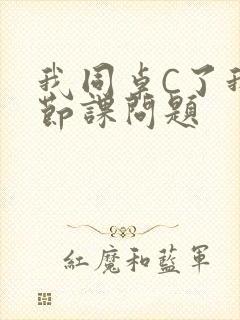 我同卓C了我
節課問題
紅魔和藍軍